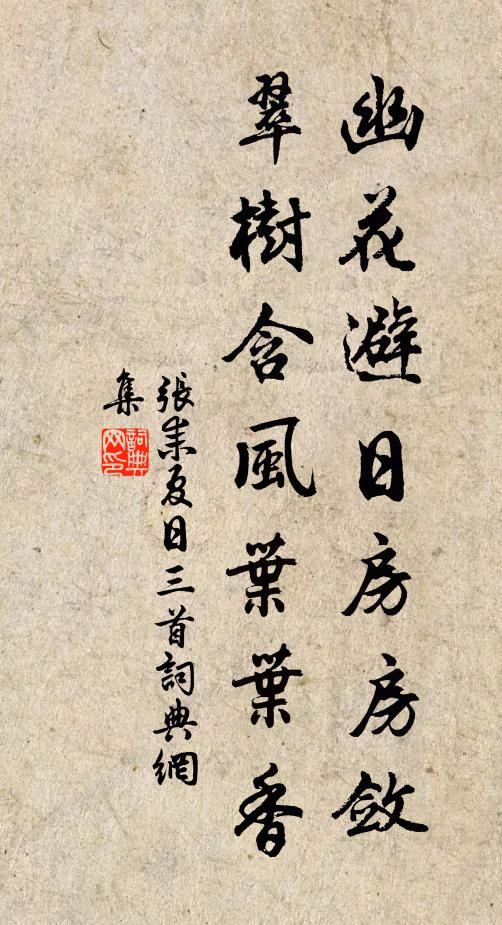 幽花避日房房斂
翠樹含風葉葉香
張耒夏日三首詞典網
集
詞典
网印